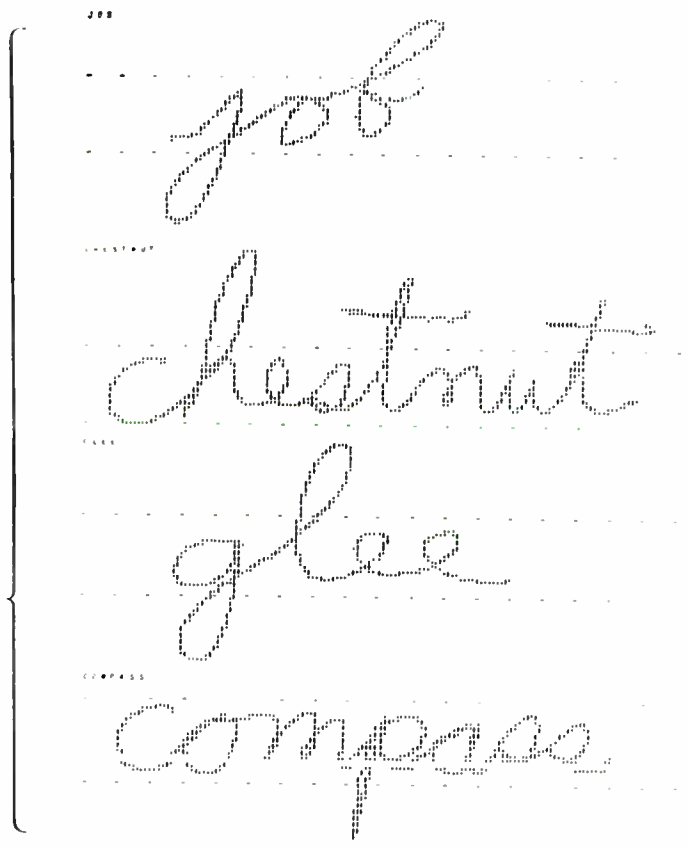 JOB
job
CHESTNUT
chestnut
GLEE
glee
COMPASS
compass